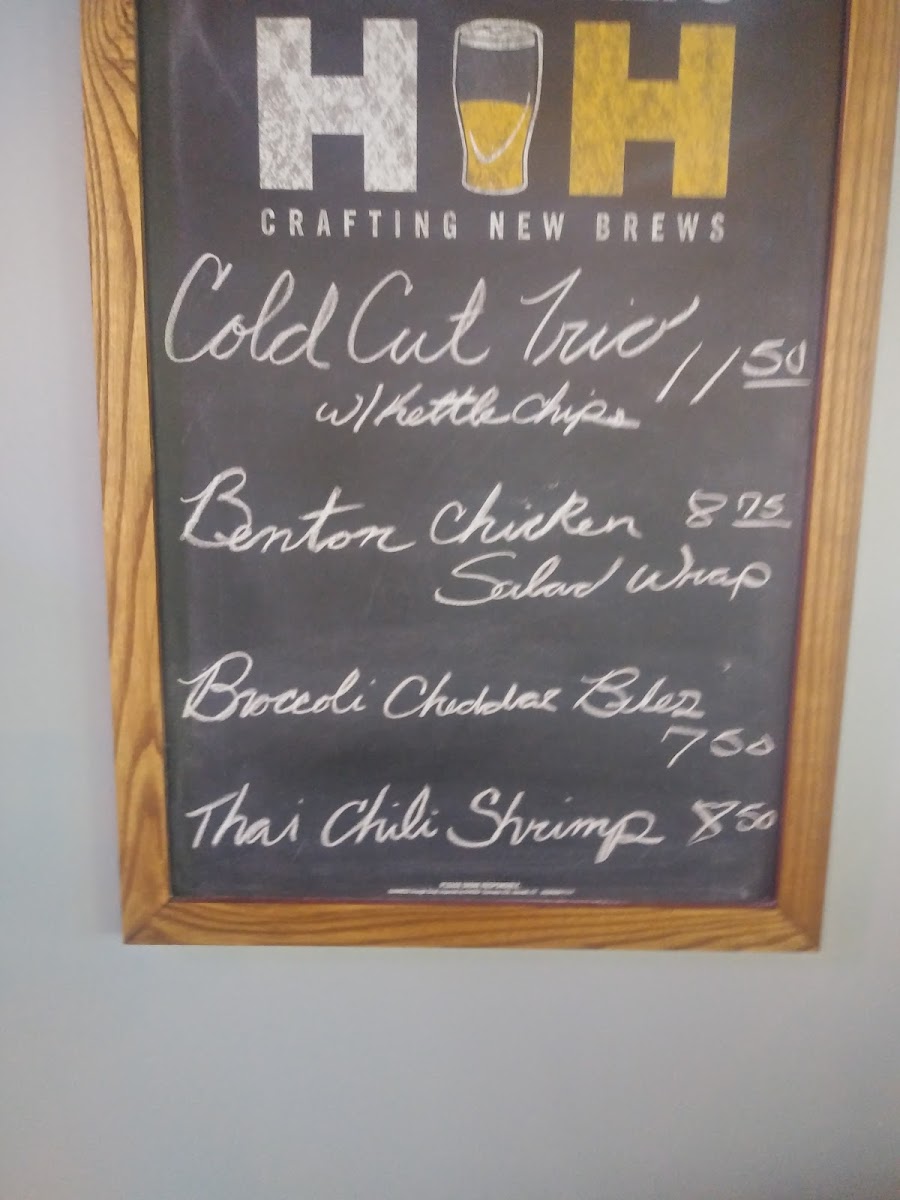 H H
CRAFTING NEW BREWS
Cold Cut Trio 11 50
w/ Kettle Chips
Benton Chicken 8 75
Salad Wrap
Broccoli Cheddar Bites
7 50
Thai Chili Shrimp 8 50
PLEASE DRINK RESPONSIBLY.